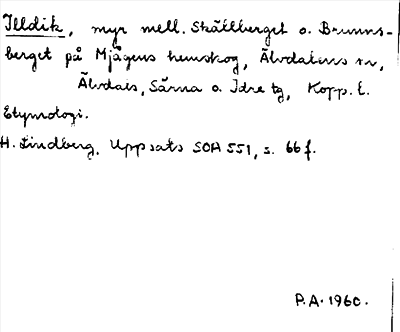 Illdik, myr mell. Skällberget o. Brunns-
berget på Mjågens hemskog, Älvdalens sn,
Älvdals, Särna o. Idre tg, Kopp. l.
Etymologi.
H. Lindberg. Uppsats SOA 551, s. 66 f.
P.A. 1960.